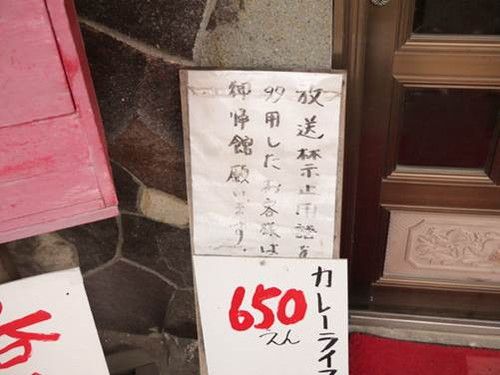 放送禁止用語を
多用したお客様は
御帰館願います。
カレーライス
650
えん